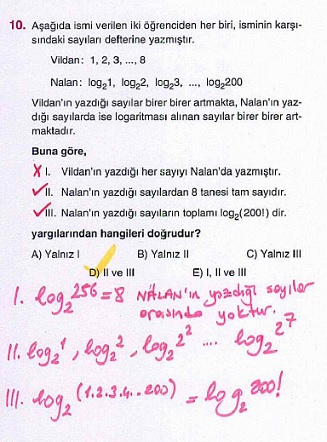 10. Aşağıda ismi verilen iki öğrenciden her biri, isminin karşı-
sındaki sayıları defterine yazmıştır.
Vildan: 1, 2, 3, ..., 8
Nalan: log₂1, log₂2, log₂3, ..., log₂200
Vildan'ın yazdığı sayılar birer birer artmakta, Nalan'ın yaz-
dığı sayılarda ise logaritması alınan sayılar birer birer art-
maktadır.
Buna göre,
X I. Vildan'ın yazdığı her sayıyı Nalan'da yazmıştır.
✓ II. Nalan'ın yazdığı sayılardan 8 tanesi tam sayıdır.
✓ III. Nalan'ın yazdığı sayıların toplamı log₂(200!) dir.
yargılarından hangileri doğrudur?
A) Yalnız I B) Yalnız II C) Yalnız III
D) II ve III E) I, II ve III
I. log₂256 = 8 NALAN'ın yazdığı sayılar
arasında yoktur.
II. log₂1, log₂2, log₂2² .... log₂2⁷
III. log₂(1.2.3.4...200) = log₂200!